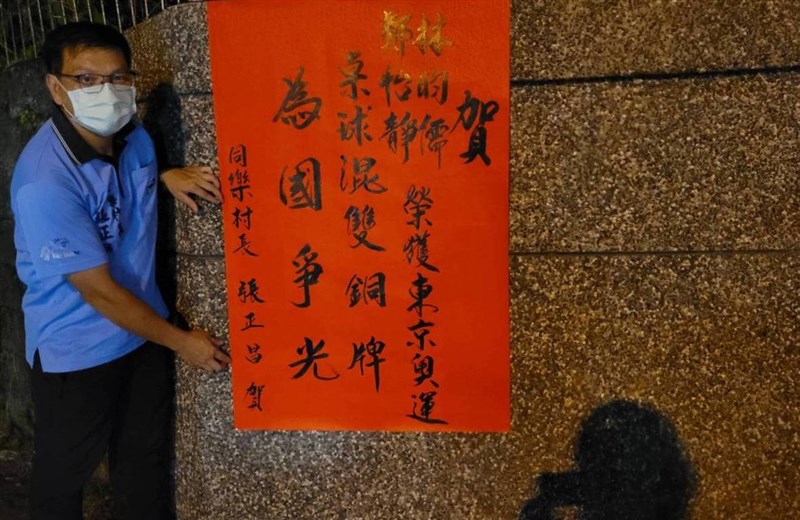 賀
林昀儒
鄭怡靜
榮獲東京奧運
桌球混雙銅牌
為國爭光
同樂村長 張正昌 賀